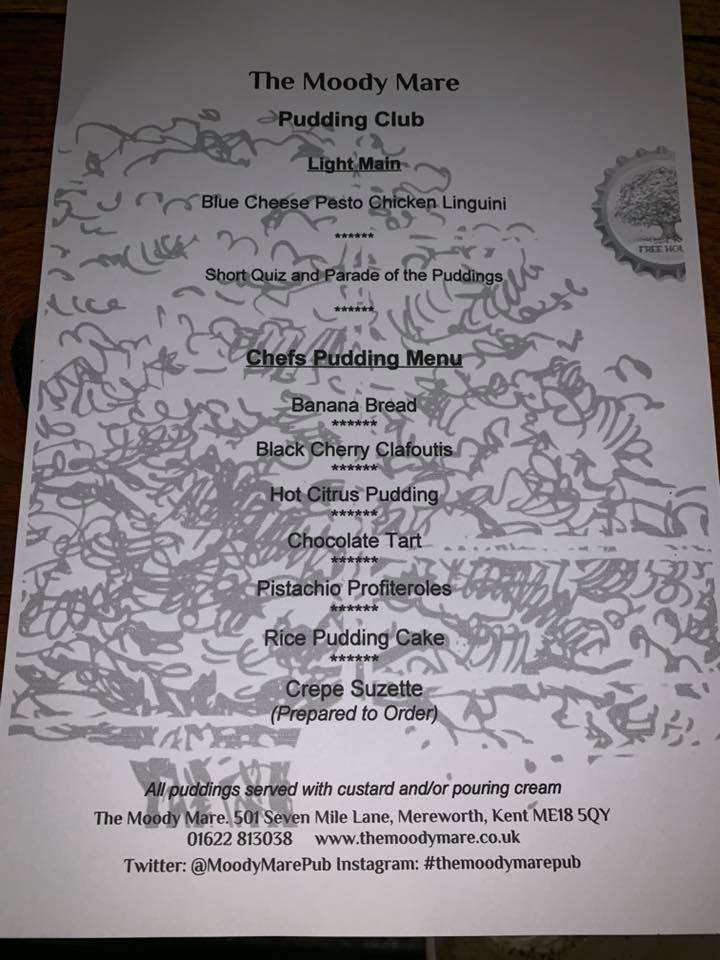 The Moody Mare
Pudding Club
Light Main
Blue Cheese Pesto Chicken Linguini
******
Short Quiz and Parade of the Puddings
******
FREE
Chefs Pudding Menu
Banana Bread
******
Black Cherry Clafoutis
******
Hot Citrus Pudding
******
Chocolate Tart
******
Pistachio Profiteroles
******
Rice Pudding Cake
******
Crepe Suzette
(Prepared to Order)
All puddings served with custard and/or pouring cream
The Moody Mare. 501 Seven Mile Lane, Mereworth, Kent ME18 5QY
01622 813038 www.themoodymare.co.uk
Twitter: @MoodyMarePub Instagram: #themoodymarepub